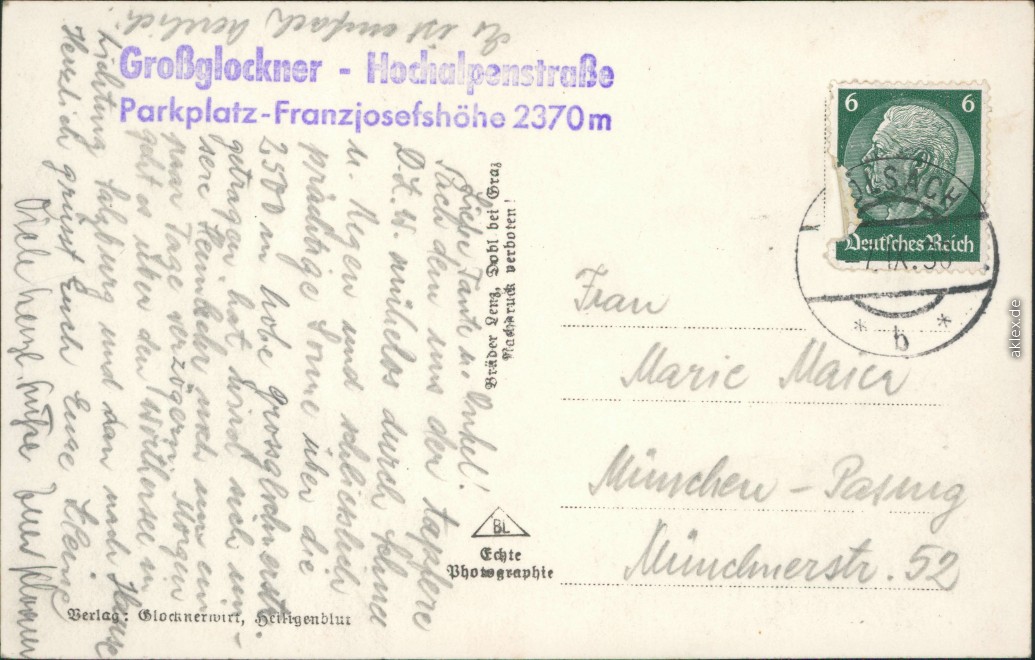 Großglockner - Hochalpenstraße
Parkplatz-Franzjosefshöhe 2370m
Liebe Tante u. Onkel!
Nach dem uns der tapfere
D.K.W. mühelos durch Schnee
u. Regen und schliesslich
prächtige Sonne über die
2500 m hohe Grossglocknerstr.
getragen hat wird sich un-
sere Heimkehr noch um ein
paar Tage verzögern. Morgen
geht es über den Wörthersee in
Richtung Salzburg und dan nach Hause
Herzlich grüsst Euch Eure
Es ist einfach herrlich.
Viele herzl. Grüße
Brüder Lenz, Dobl bei Graz
Nachdruck verboten!
BL
Echte
Photographie
Verlag: Glocknerwirt, Heiligenblut
6 6
Deutsches Reich
b
Frau
Marie Maier
München - Pasing
Münchnerstr. 52
aklex.de